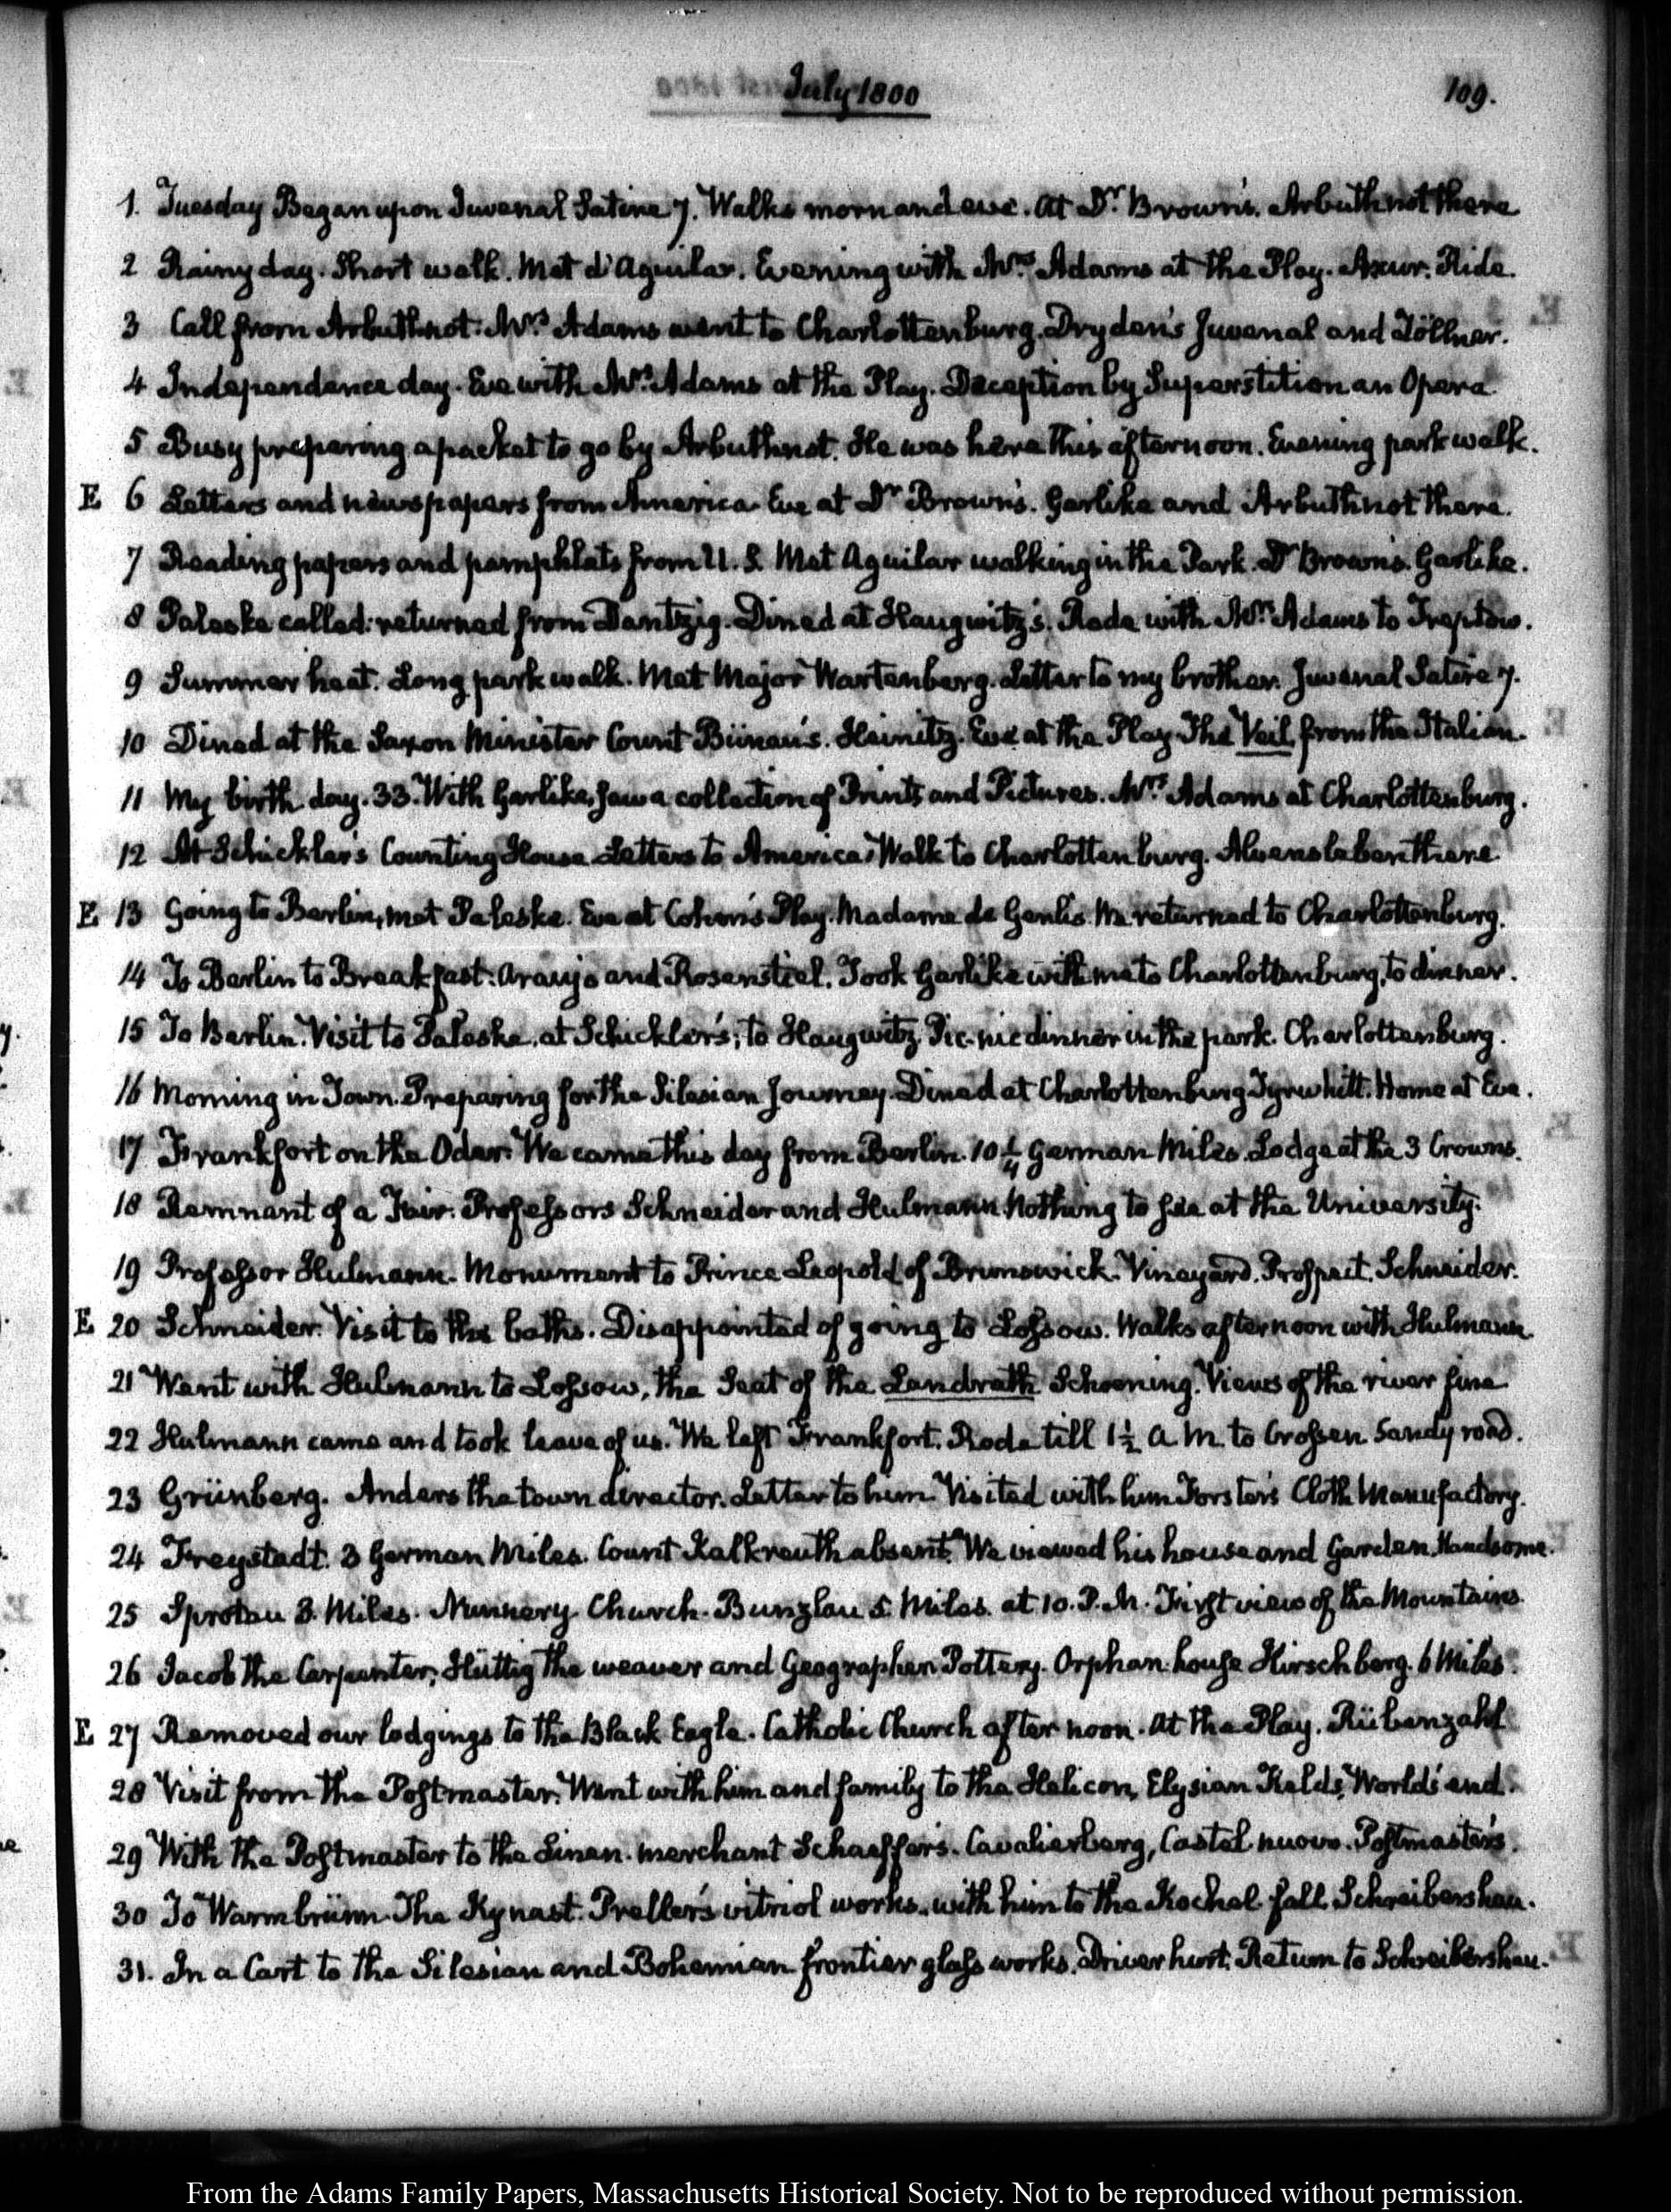 July 1800
109.
1. Tuesday Began upon Juvenal Satire 7. Walks morn and eve. At Dr. Brown's. Arbuthnot there
2 Rainy day. Short walk. Met d'Aguilar. Evening with Mrs. Adams at the Play. Axur. Ride.
3 Call from Arbuthnot. Mrs Adams went to Charlottenburg. Dryden's Juvenal and Zöllner.
4 Independence day. Eve with Mrs. Adams at the Play. Deception by Superstition an Opera
5 Busy preparing a packet to go by Arbuthnot. He was here this afternoon. Evening park walk.
E 6 Letters and newspapers from America. Eve at Dr Brown's. Garlike and Arbuthnot there.
7 Reading papers and pamphlets from U.S. Met Aguilar walking in the Park. Dr Brown's. Garlike.
8 Paleske called: returned from Dantzig. Dined at Haugwitz's. Rode with Mrs. Adams to Treptow.
9 Summer heat. Long park walk. Met Major Wartenberg. Letter to my brother. Juvenal Satire 7.
10 Dined at the Saxon Minister Count Bünau's. Heinitz. Eve at the Play The Veil from the Italian.
11 My birth day. 33. With Garlike, saw a collection of Prints and Pictures. Mrs. Adams at Charlottenburg.
12 At Schickler's Counting House Letters to America. Walk to Charlottenburg. Alvensleben there.
E 13 Going to Berlin, met Paleske. Eve at Cohen's Play. Madame de Genlis. We returned to Charlottenburg.
14 To Berlin to Breakfast: Araujo and Rosenstiel. Took Garlike with me to Charlottenburg, to dinner.
15 To Berlin. Visit to Paleske, at Schickler's; to Haugwitz. Pic-nic dinner in the park. Charlottenburg.
16 Morning in Town. Preparing for the Silesian Journey. Dined at Charlottenburg Tyrwhitt. Home at Eve.
17 Frankfort on the Oder. We came this day from Berlin. 10 1/4 German Miles. Lodge at the 3 Crowns.
18 Remnant of a Fair. Professors Schneider and Hulmann Nothing to see at the University.
19 Professor Hulmann. Monument to Prince Leopold of Brunswick. Vineyard. Prospect. Schneider.
E 20 Schneider. Visit to the baths. Disappointed of going to Lossow. Walks afternoon with Hulmann.
21 Went with Hulmann to Lossow, the Seat of the Landrath Schoening. Views of the river fine
22 Hulmann came and took leave of us. We left Frankfort. Rode till 1 1/2 A.M. to Crossen. Sandy road.
23 Grünberg. Anders the town director. Letter to him. Visited with him Forster's Cloth Manufactory.
24 Freystadt. 3 German Miles. Count Kalkreuth absent. We viewed his house and Garden. Handsome.
25 Sprotau 3. Miles. Nunnery Church. Bunzlau 5. Miles. at 10. P.M. First view of the Mountains.
26 Jacob the Carpenter, Hüttig the weaver and Geographer. Pottery. Orphan house Hirschberg. 6 Miles.
E 27 Removed our lodgings to the Black Eagle. Catholic Church after noon. At the Play. Rübenzahl
28 Visit from the Postmaster. Went with him and family to the Helicon, Elysian Fields, World's end.
29 With the Postmaster to the Linen merchant Schaeffer's. Cavalierberg, Castel nuovo. Postmaster's.
30 To Warmbrünn. The Kynast. Preller's vitriol works, with him to the Kochel fall. Schreibershau.
31. In a Cart to the Silesian and Bohemian frontier glass works. Driver hurt. Return to Schreibershau.
From the Adams Family Papers, Massachusetts Historical Society. Not to be reproduced without permission.